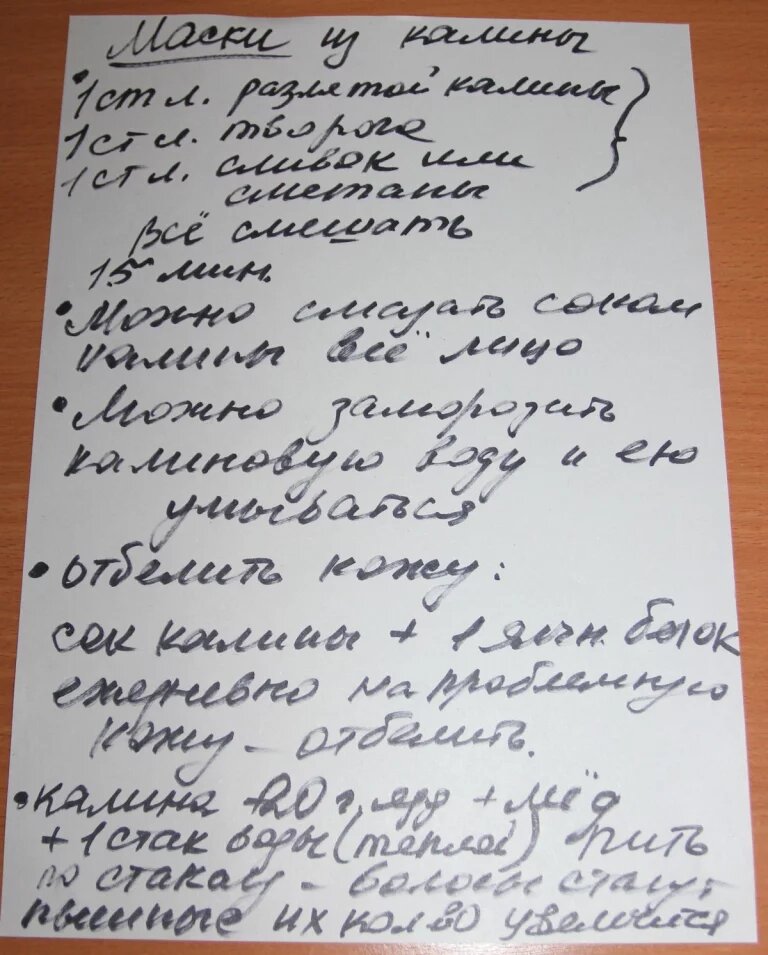 Маски из калины
• 1 ст л. размятой калины
1 ст л. творога
1 ст л. сливок или
сметаны
всё смешать
15 мин.
• Можно смазать соком
калины всё лицо
• Можно заморозить
калиновую воду и ею
умываться
• отбелить кожу:
сок калины + 1 яичн. белок
ежедневно на проблемную
кожу – отбелить.
• калина 20 г. + мёд
+ 1 стак воды (теплой) пить
по стакану – волосы станут
пышные их кол-во увеличится